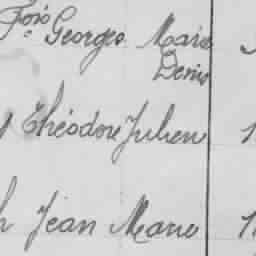 Fois Georges Marie
Denis
Théodore Julien
h Jean Marie